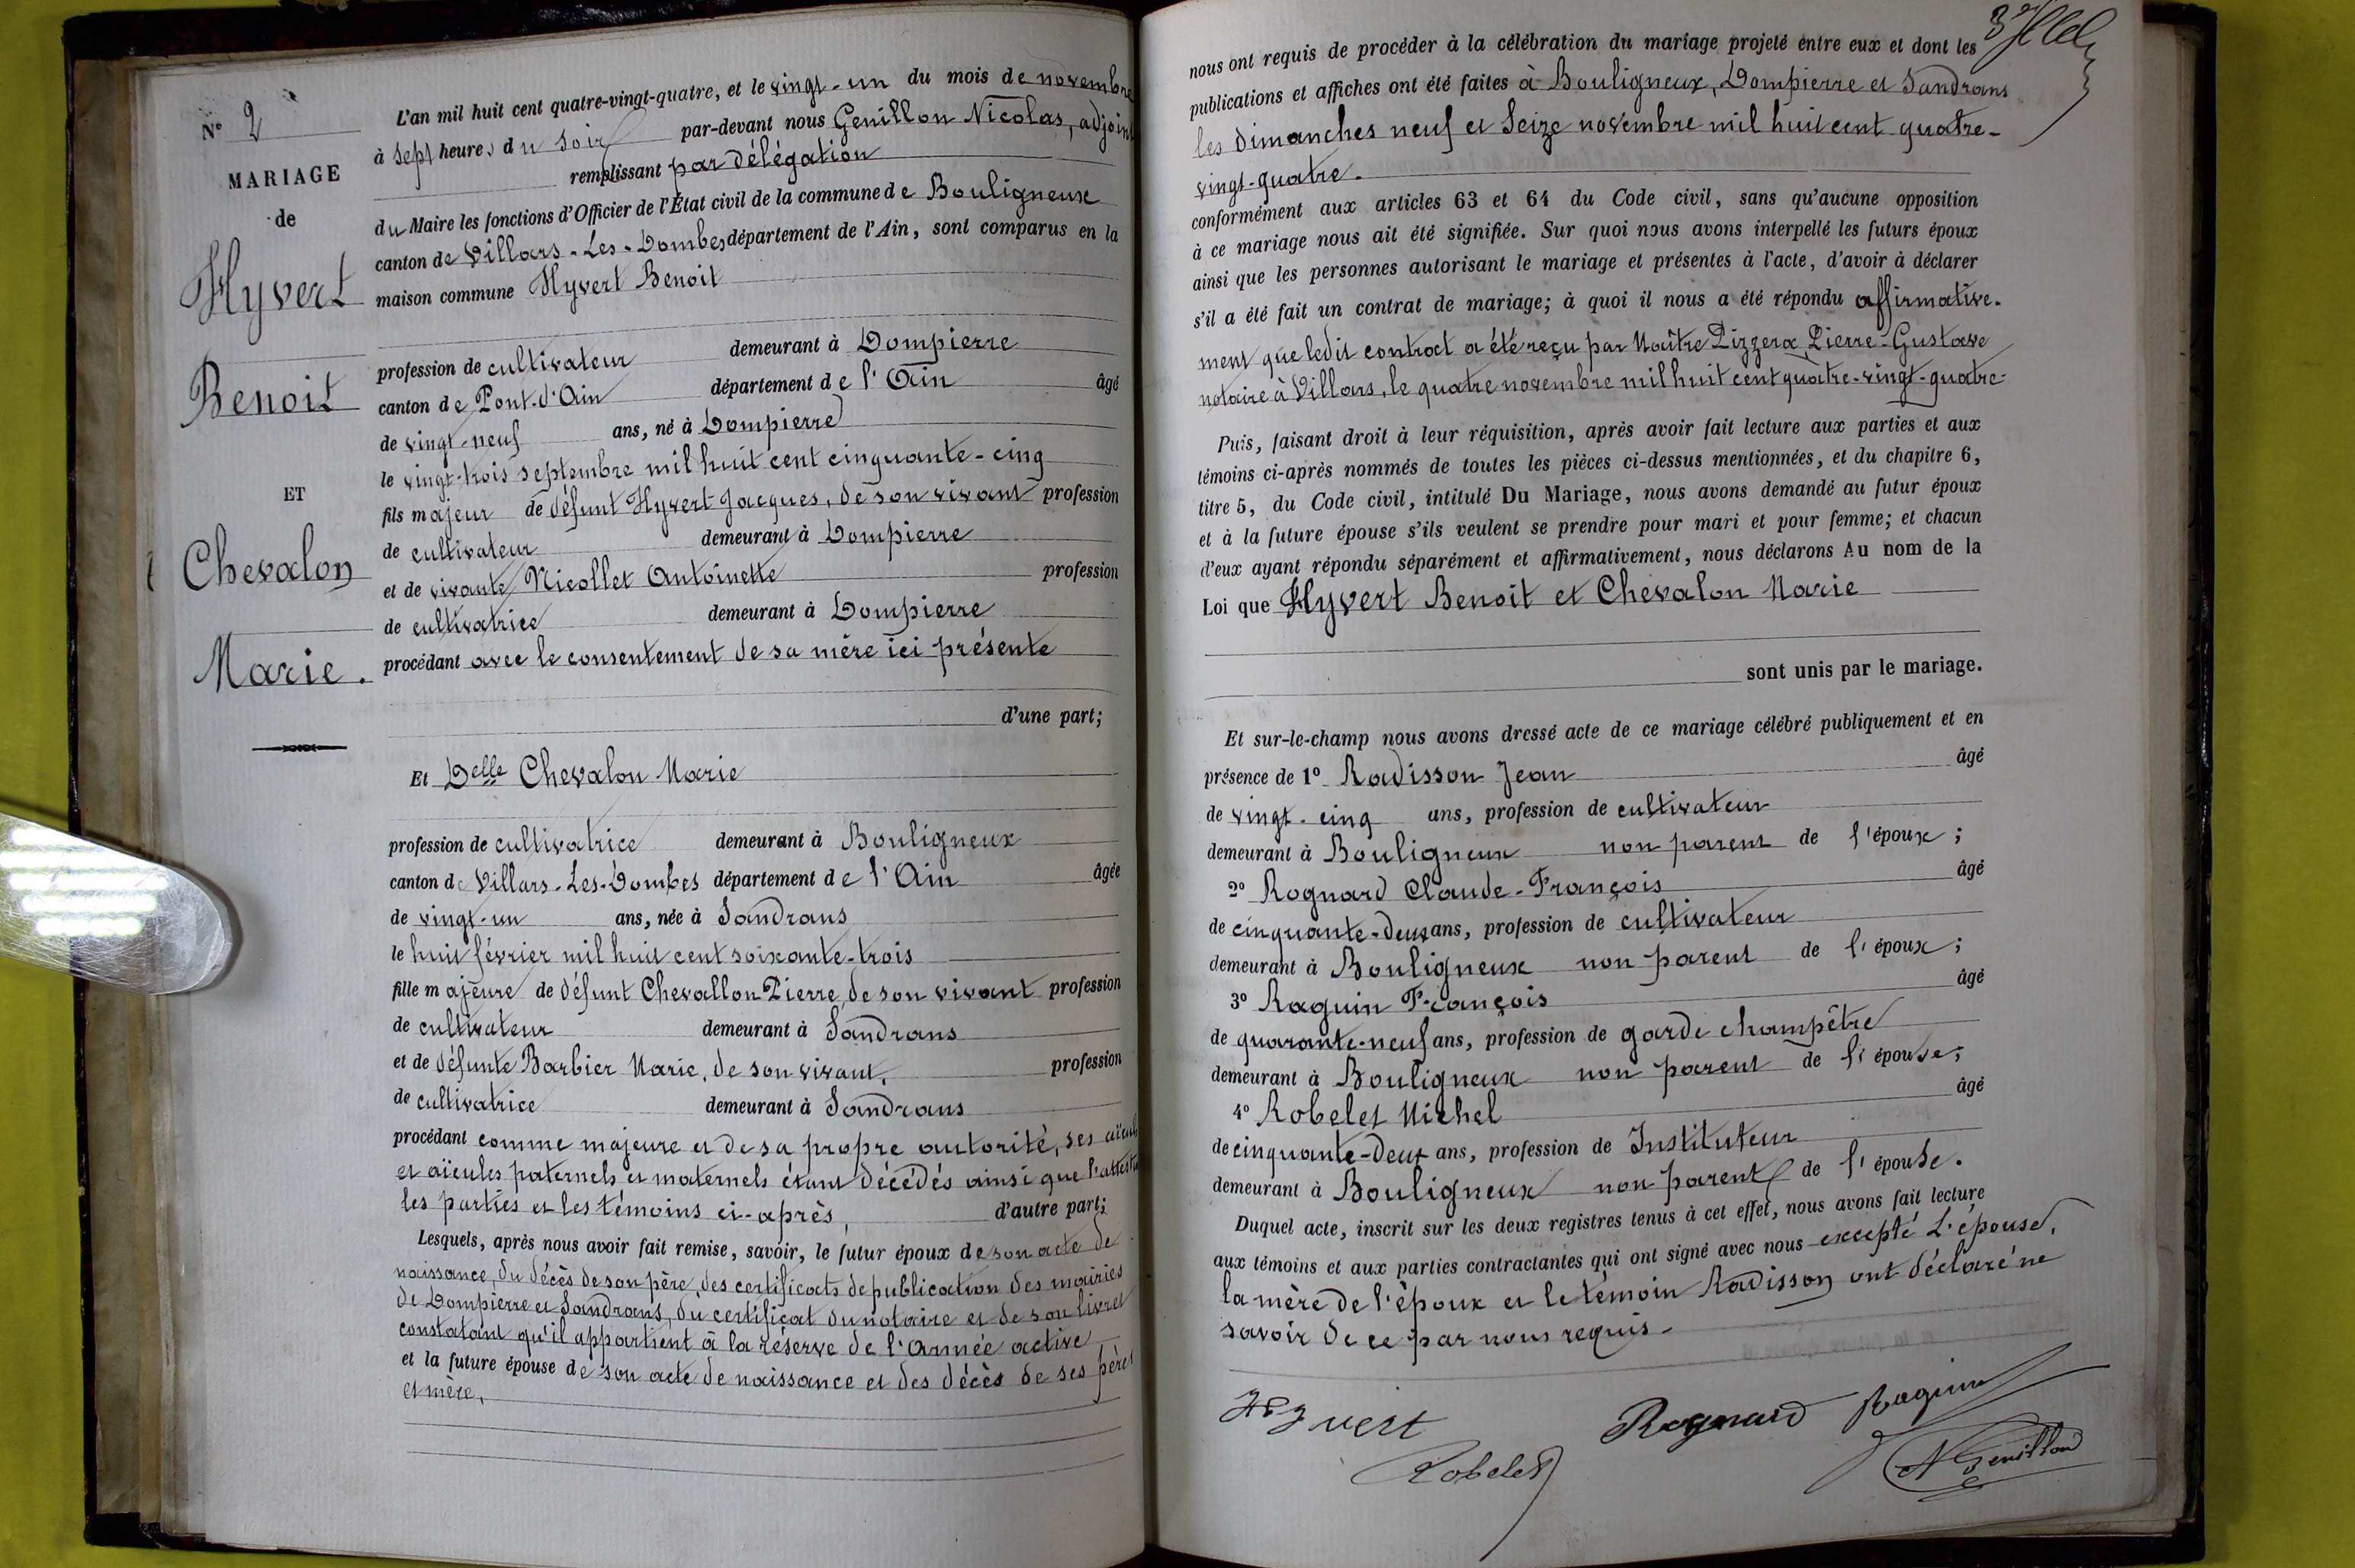 N° 2
MARIAGE
de
Hyvert
Benoit
ET
Chevalon
Marie.
L'an mil huit cent quatre-vingt-quatre, et le vingt-un du mois de novembre
à sept heures du soir par-devant nous Genillon Nicolas, adjoint
remplissant par délégation
du Maire les fonctions d'Officier de l'État civil de la commune de Bouligneux
canton de Villars-Les-Dombes département de l'Ain, sont comparus en la
maison commune Hyvert Benoit
profession de cultivateur demeurant à Dompierre
canton de Pont-d'Ain département de l'Ain âgé
de vingt-neuf ans, né à Dompierre
le vingt-trois septembre mil huit cent cinquante-cinq
fils majeur de défunt Hyvert Jacques, de son vivant profession
de cultivateur demeurant à Dompierre
et de vivante Nicollet Antoinette profession
de cultivatrice demeurant à Dompierre
procédant avec le consentement de sa mère ici présente
d'une part;
Et Delle Chevalon Marie
profession de cultivatrice demeurant à Bouligneux
canton de Villars-Les-Dombes département de l'Ain âgée
de vingt-un ans, née à Sandrans
le huit février mil huit cent soixante-trois
fille majeure de défunt Chevallon Pierre, de son vivant profession
de cultivateur demeurant à Sandrans
et de défunte Barbier Marie, de son vivant, profession
de cultivatrice demeurant à Sandrans
procédant comme majeure et de sa propre autorité, ses aïeuls
et aïeules paternels et maternels étant décédés ainsi que l'attestent
les parties et les témoins ci-après, d'autre part;
Lesquels, après nous avoir fait remise, savoir, le futur époux de son acte de
naissance, du décès de son père, des certificats de publication des mairies
de Dompierre et Sandrans, du certificat du notaire et de son livret
constatant qu'il appartient à la réserve de l'Armée active
et la future épouse de son acte de naissance et des décès de ses pères
et mère,
nous ont requis de procéder à la célébration du mariage projeté entre eux et dont les
publications et affiches ont été faites à Bouligneux, Dompierre et Sandrans
les dimanches neuf et seize novembre mil huit cent quatre-
vingt-quatre.
conformément aux articles 63 et 64 du Code civil, sans qu'aucune opposition
à ce mariage nous ait été signifiée. Sur quoi nous avons interpellé les futurs époux
ainsi que les personnes autorisant le mariage et présentes à l'acte, d'avoir à déclarer
s'il a été fait un contrat de mariage; à quoi il nous a été répondu affirmative-
ment que ledit contrat a été reçu par Maître Pizzera Pierre-Gustave
notaire à Villars, le quatre novembre mil huit cent quatre-vingt-quatre-
Puis, faisant droit à leur réquisition, après avoir fait lecture aux parties et aux
témoins ci-après nommés de toutes les pièces ci-dessus mentionnées, et du chapitre 6,
titre 5, du Code civil, intitulé Du Mariage, nous avons demandé au futur époux
et à la future épouse s'ils veulent se prendre pour mari et pour femme; et chacun
d'eux ayant répondu séparément et affirmativement, nous déclarons Au nom de la
Loi que Hyvert Benoit et Chevalon Marie
sont unis par le mariage.
Et sur-le-champ nous avons dressé acte de ce mariage célébré publiquement et en
présence de 1° Radisson Jean âgé
de vingt-cinq ans, profession de cultivateur
demeurant à Bouligneux non parent de l'époux;
2° Rognard Claude-François âgé
de cinquante-deux ans, profession de cultivateur
demeurant à Bouligneux non parent de l'époux;
3° Raguin François âgé
de quarante-neuf ans, profession de garde champêtre
demeurant à Bouligneux non parent de l'épouse;
4° Robelet Michel âgé
de cinquante-deux ans, profession de Instituteur
demeurant à Bouligneux non parent de l'épouse.
Duquel acte, inscrit sur les deux registres tenus à cet effet, nous avons fait lecture
aux témoins et aux parties contractantes qui ont signé avec nous excepté L'épouse,
la mère de l'époux et le témoin Radisson ont déclaré ne
savoir de ce par nous requis-
Hyvert
Rognard
Raguin
Robelet
N Genillon